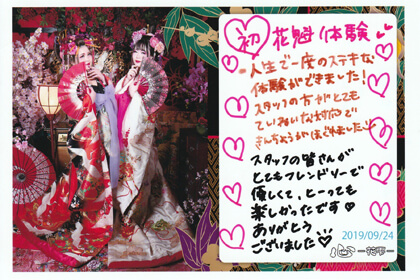 初 花魁体験
人生で一度のステキな
体験ができました!
スタッフの方がとても
ていねいな対応で
きんちょうがほぐれました♪
スタッフの皆さんが
とてもフレンドリーで
優しくて、とーっても
楽しかったです♡
ありがとう
ございました♡
2019/09/24
心 -花雫-